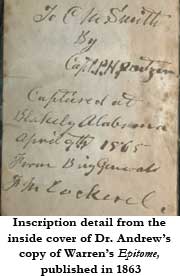 To C M Smith
By
Capt
Captured at
Blakely Alabama
April 9th 1865
From Brig Genral
F. M. Cockerel
Inscription detail from the
inside cover of Dr. Andrew's
copy of Warren's Epitome,
published in 1863